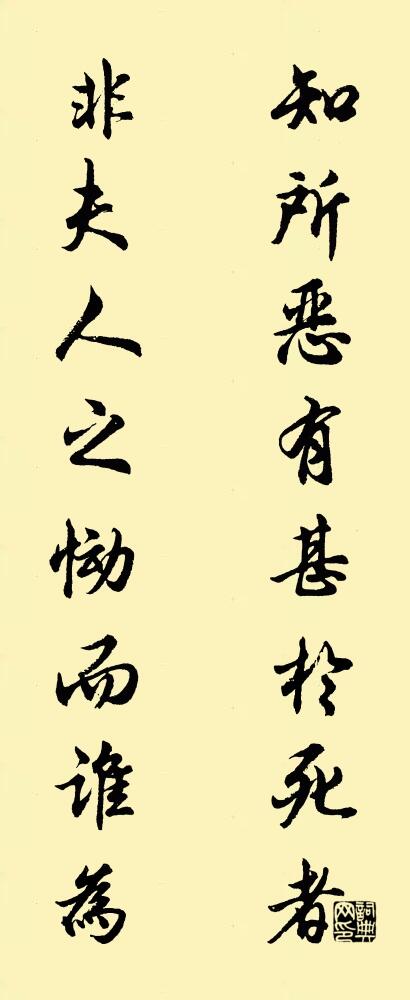 知所恶有甚於死者
非夫人之恸而誰為
詞典网印